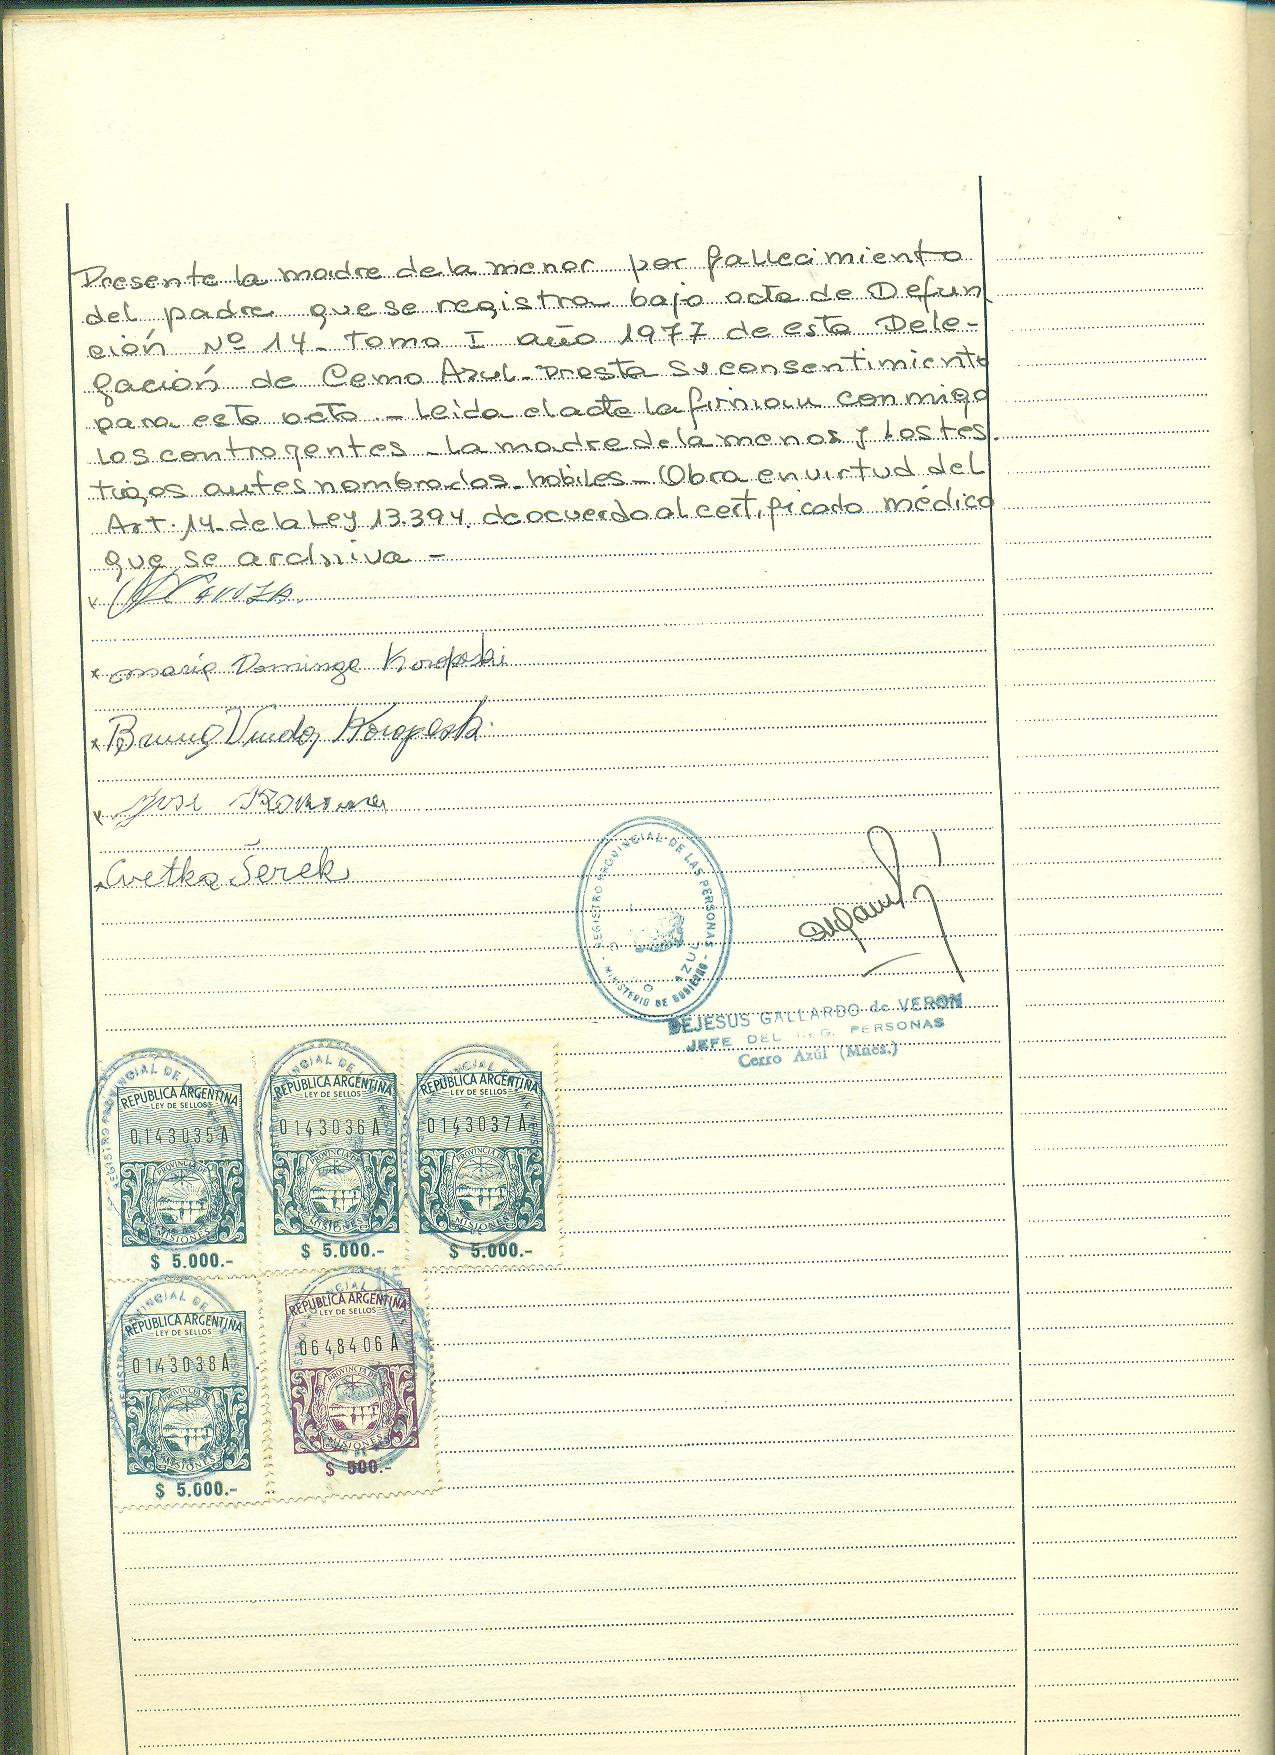 Presente la madre de la menor por fallecimiento
del padre que se registra bajo acta de Defun
ción Nº 14 - Tomo I año 1977 de esta Dele-
gación de Cerro Azul - Presta su consentimiento
para esto acto. - Leida el acta la firman conmigo
los contrayentes - la madre de la menor y los tes.
tigos antes nombrados - habiles - Obra en virtud del
Art. 14 - de la Ley 13.394. de acuerdo al certificado médico
que se archiva -
x
x Maria Dominga
x Bruno
x Jose
x Cvetka Šerek
REGISTRO PROVINCIAL DE LAS PERSONAS
MINISTERIO DE GOBIERNO
AZUL
DEJESUS GALLARDO de VERON
JEFE DEL REG. PERSONAS
Cerro Azúl (Mnes.)
REPUBLICA ARGENTINA
LEY DE SELLOS
0143035A
PROVINCIA DE
MISIONES
$ 5.000.-
REPUBLICA ARGENTINA
LEY DE SELLOS
0143036A
PROVINCIA DE
MISIONES
$ 5.000.-
REPUBLICA ARGENTINA
LEY DE SELLOS
0143037A
PROVINCIA DE
MISIONES
$ 5.000.-
REPUBLICA ARGENTINA
LEY DE SELLOS
0143038A
PROVINCIA DE
MISIONES
$ 5.000.-
REPUBLICA ARGENTINA
LEY DE SELLOS
0648406A
PROVINCIA DE
MISIONES
$ 500.-